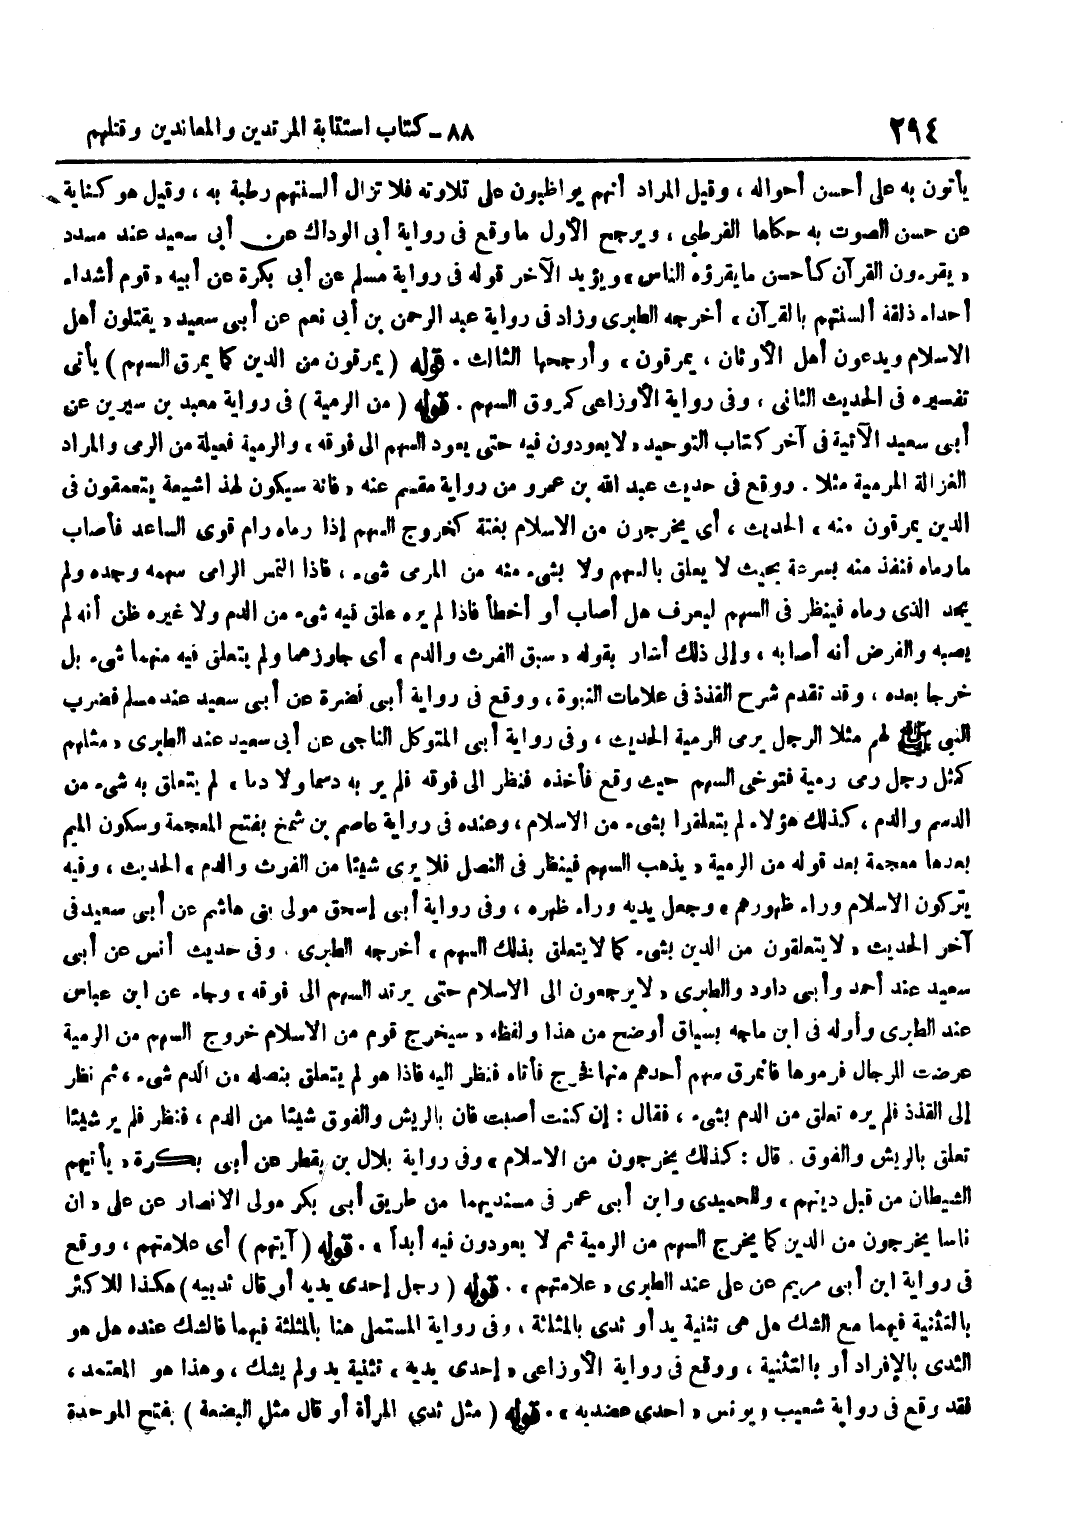 ٢٩٤ ٨٨ - كتاب استتابة المرتدين والمعاندين وقتلهم
يأتون به على أحسن أحواله ، وقيل المراد أنهم يواظبون على تلاوته فلا تزال ألسنتهم رطبة به ، وقيل هو كناية
عن حسن الصوت به حكاها القرطبى ، ويرجح الأول ما وقع فى رواية أبى الوداك عن أبى سعيد عند مسدد
« يقرءون القرآن كأحسن ما يقرؤه الناس » ويؤيد الآخر قوله فى رواية مسلم عن أبى بكرة عن أبيه « قوم أشداء
أحداء ذلقة ألسنتهم بالقرآن » أخرجه الطبرى وزاد فى رواية عبد الرحمن بن أبى نعم عن أبى سعيد « يقتلون أهل
الاسلام ويدعون أهل الأوثان ، يمرقون » وأرجحها الثالث . قوله ( يمرقون من الدين كما يمرق السهم ) يأتى
تفسيره فى الحديث الثانى ، وفى رواية الأوزاعى كمروق السهم . قوله ( من الرمية ) فى رواية معبد بن سيرين عن
أبى سعيد الآتية فى آخر كتاب التوحيد « لا يعودون فيه حتى يعود السهم الى فوقه » والرمية فعيلة من الرمى والمراد
الغزالة المرمية مثلا . ووقع فى حديث عبد الله بن عمرو من رواية مقسم عنه « فانه سيكون لهذا شيعة يتعمقون فى
الدين يمرقون منه » الحديث ، أى يخرجون من الاسلام بغتة كخروج السهم إذا رماه رام قوى الساعد فأصاب
ما رماه فنفذ منه بسرعة بحيث لا يعلق بالسهم ولا بشىء منه من المرمى شىء ، فاذا التمس الرامى سهمه وجده ولم
يجد الذى رماه فينظر فى السهم ليعرف هل أصاب أو أخطأ فاذا لم يره علق فيه شىء من الدم ولا غيره ظن أنه لم
يصبه والفرض أنه أصابه ، وإلى ذلك أشار بقوله « سبق الفرث والدم » أى جاوزهما ولم يتعلق فيه منهما شىء بل
خرجا بعده ، وقد تقدم شرح القذذ فى علامات النبوة ، ووقع فى رواية أبى نضرة عن أبى سعيد عند مسلم فضرب
النبى ﷺ لهم مثلا الرجل يرمى الرمية الحديث ، وفى رواية أبى المتوكل الناجى عن أبى سعيد عند الطبرى « مثلهم
كمثل رجل رمى رمية فتوخى السهم حيث وقع فأخذه فنظر الى فوقه فلم ير به دسما ولا دما » لم يتعلق به شىء من
الدسم والدم ، كذلك هؤلاء لم يتعلقوا بشىء من الاسلام ، وعنده فى رواية عاصم بن شمخ بفتح المعجمة وسكون الميم
بعدها معجمة بعد قوله من الرمية « يذهب السهم فينظر فى النصل فلا يرى شيئا من الفرث والدم » الحديث ، وفيه
يتركون الاسلام وراء ظهورهم » وجعل يديه وراء ظهره ، وفى رواية أبى إسحق مولى بنى هاشم عن أبى سعيد فى
آخر الحديث « لا يتعلقون من الدين بشىء كما لا يتعلق بذلك السهم » أخرجه الطبرى . وفى حديث أنس عن أبى
سعيد عند أحمد وأبى داود والطبرى « لا يرجعون الى الاسلام حتى يرتد السهم الى فوقه » وجاء عن ابن عباس
عند الطبرى وأوله فى ابن ماجه بسياق أوضح من هذا ولفظه « سيخرج قوم من الاسلام خروج السهم من الرمية
عرضت للرجال فرموها فانمرق سهم أحدهم منها فخرج فأتاه فنظر اليه فاذا هو لم يتعلق بنصله من الدم شىء ، ثم نظر
إلى القذذ فلم يره تعلق من الدم بشىء ، فقال : إن كنت أصبت فان بالريش والفوق شيئا من الدم ، فنظر فلم ير شيئا
تعلق بالريش والفوق . قال : كذلك يخرجون من الاسلام » وفى رواية بلال بن بقطر عن أبى بكرة « يأتيهم
الشيطان من قبل دينهم » وللحميدى وابن أبى عمر فى مسنديهما من طريق أبى بكر مولى الانصار عن على « ان
ناسا يخرجون من الدين كما يخرج السهم من الرمية ثم لا يعودون فيه أبدا » . قوله ( آيتهم ) أى علامتهم ، ووقع
فى رواية ابن أبى مريم عن على عند الطبرى « علامتهم » . قوله ( رجل إحدى يديه أو قال ثدييه ) هكذا للأكثر
بالتثنية فيهما مع الشك هل هى تثنية يد أو ثدى بالمثلثة ، وفى رواية المستملى هنا بالمثلثة فيهما فالشك عنده هل هو
الثدى بالإفراد أو بالتثنية ، ووقع فى رواية الأوزاعى « إحدى يديه » تثنية يد ولم يشك ، وهذا هو المعتمد ،
فقد وقع فى رواية شعيب ويونس « احدى عضديه » . قوله ( مثل ثدي المرأة أو قال مثل البضعة ) بفتح الموحدة